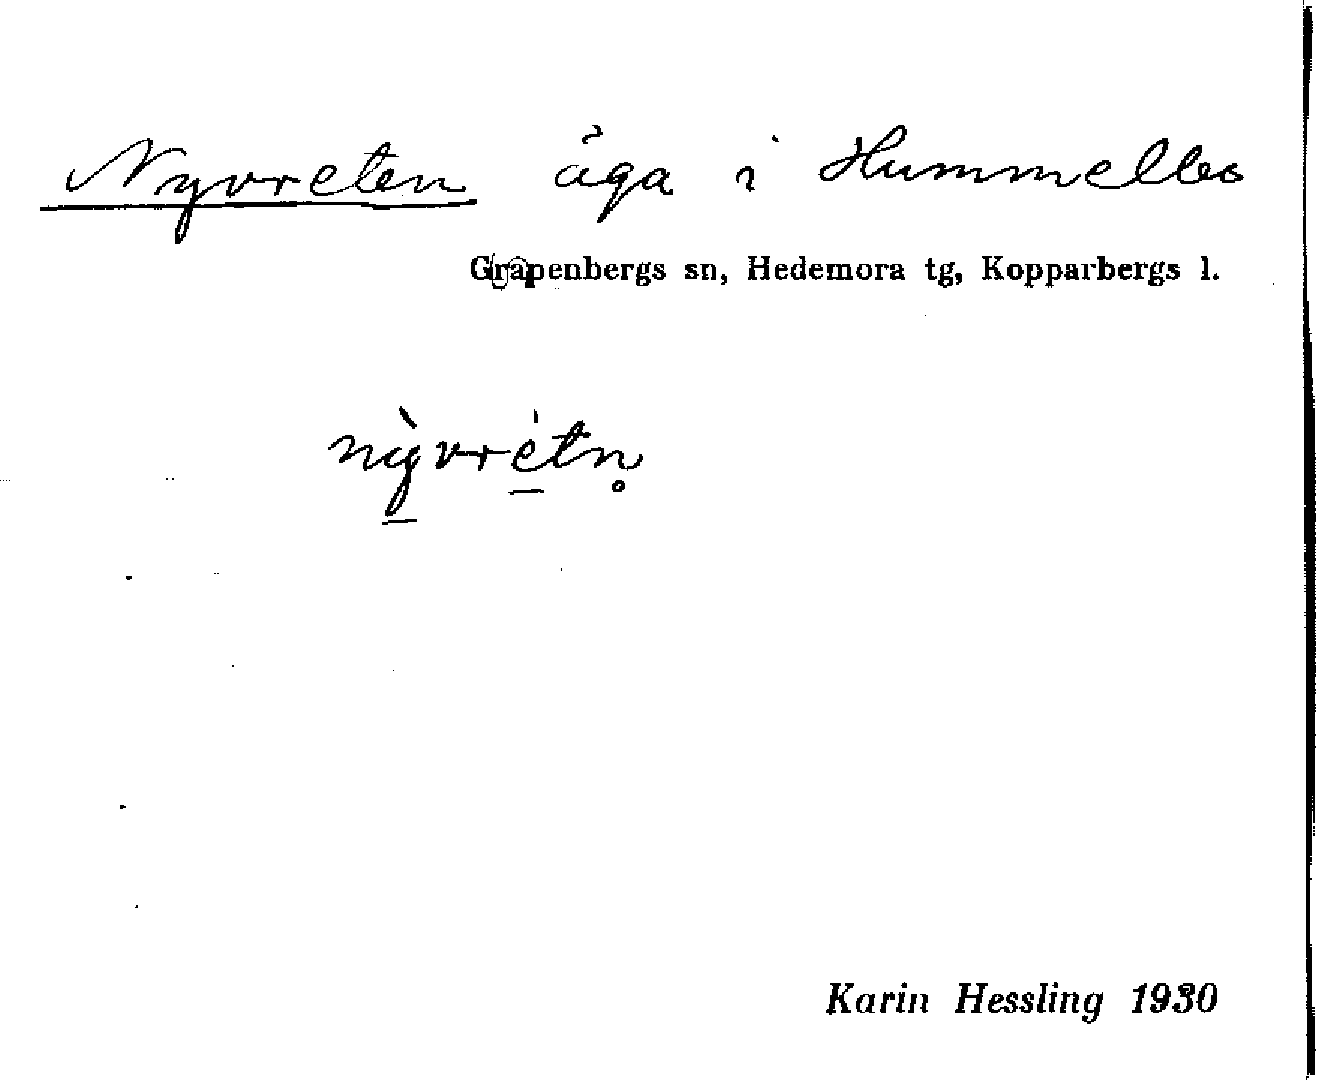 Nyvreten äga i Hummelbo
Grapenbergs sn, Hedemora tg, Kopparbergs l.
nỳ̱vré̱tn̥
Karin Hessling 1930